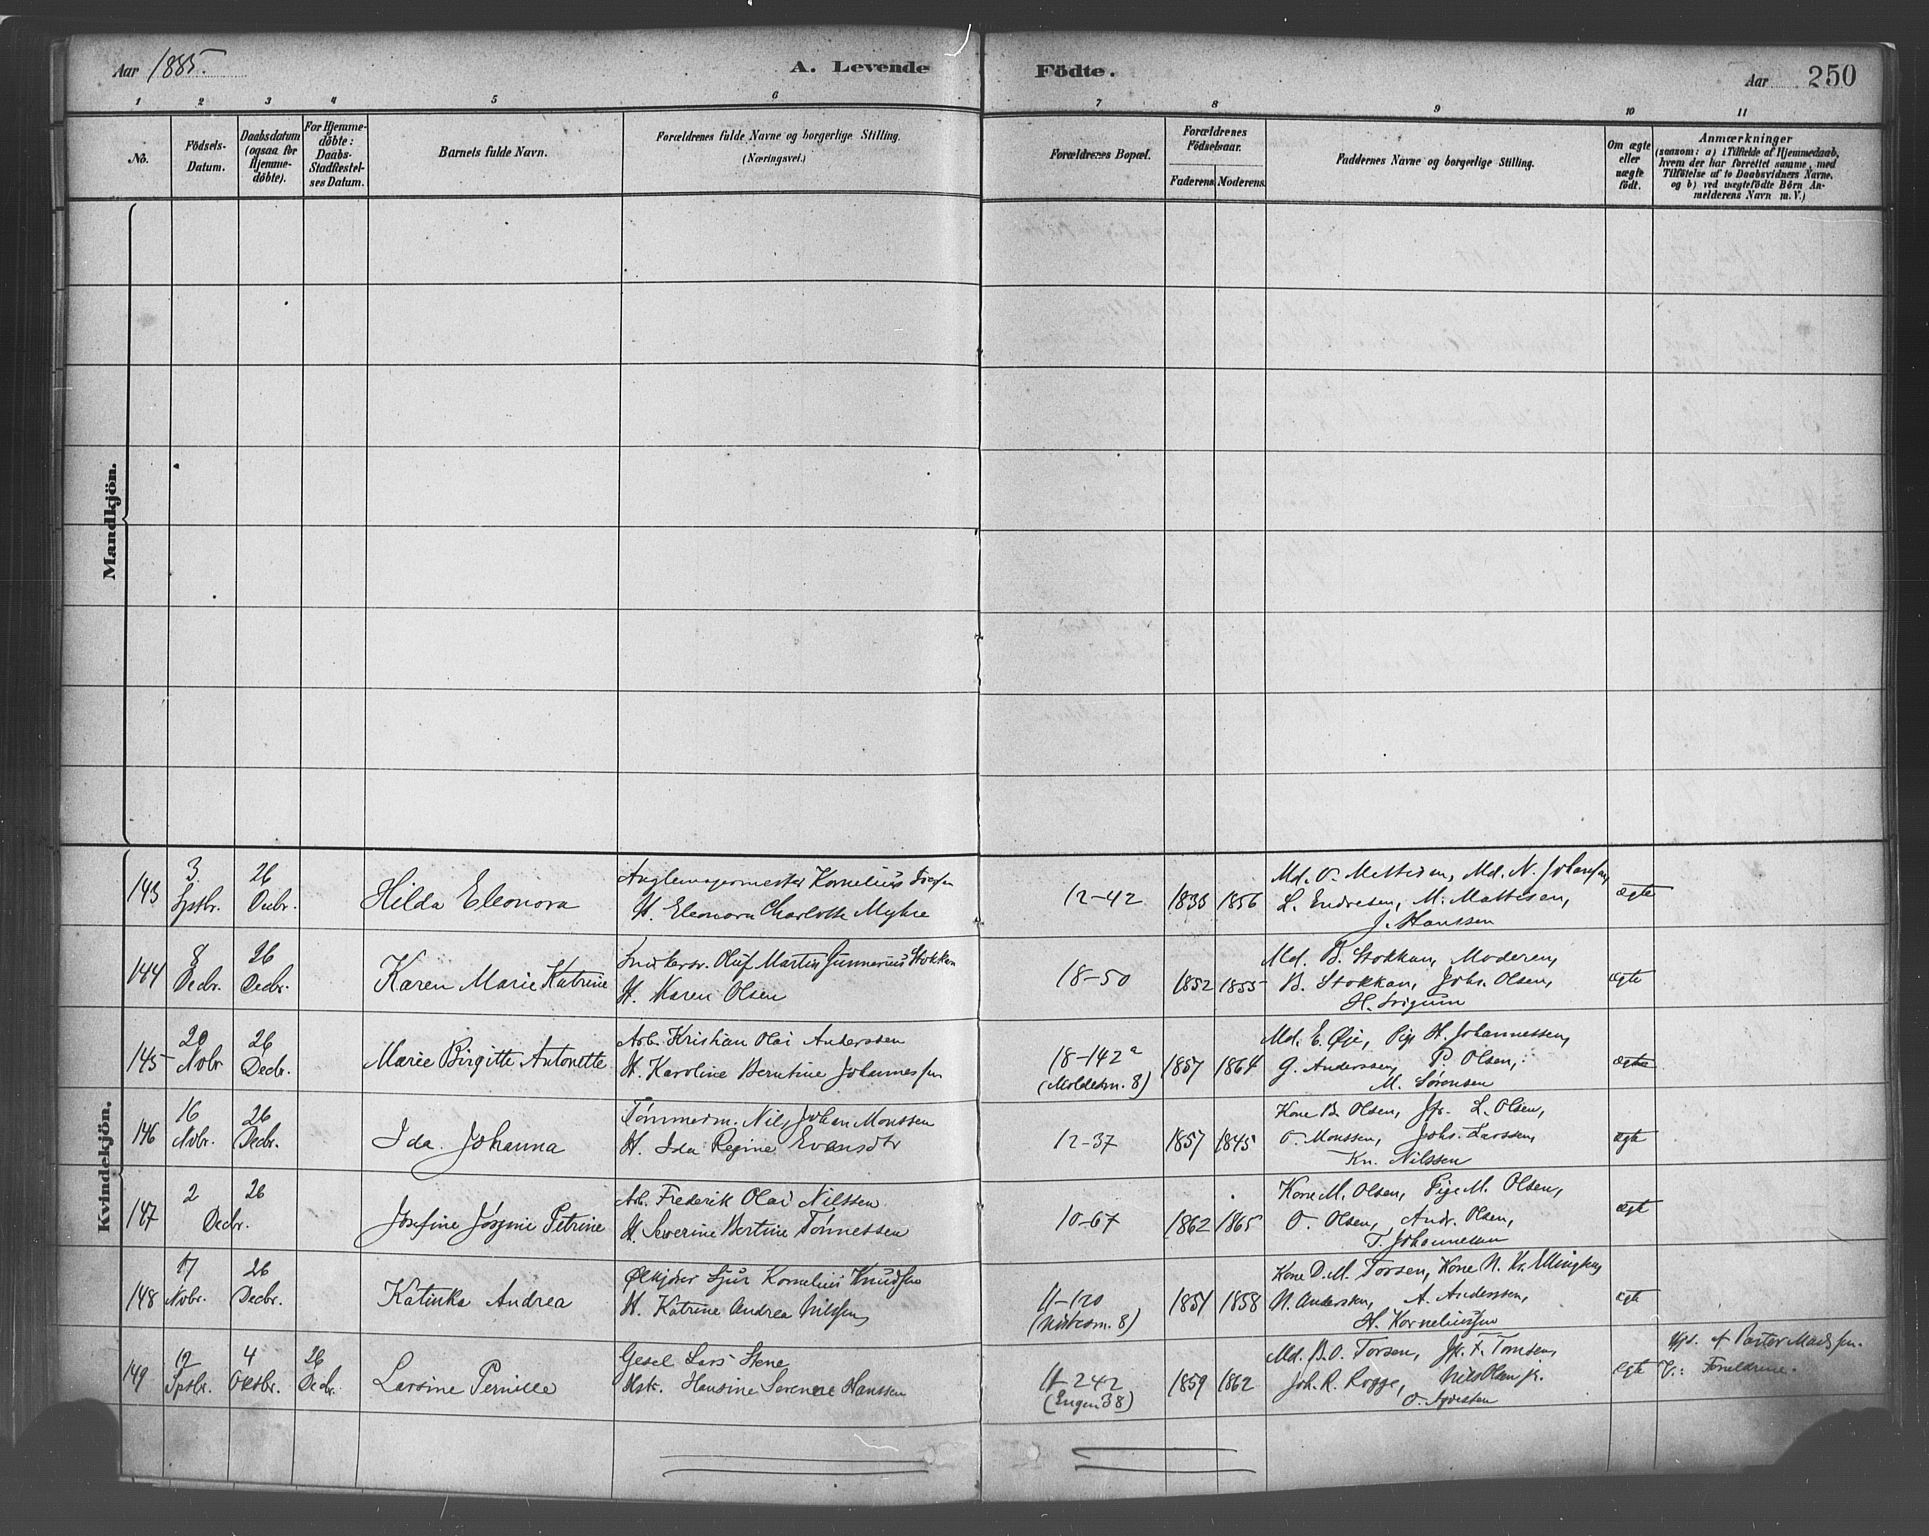 Aar 1885.
A. Levende Födte.
Aar 250
1 2 3 4 5 6 7 8 9 10 11
No.
Födsels-Datum.
Daabsdatum (ogsaa for Hjemme-døbte).
For Hjemme-døbte: Daabs-Stadfæstel-ses Datum.
Barnets fulde Navn.
Forældrenes fulde Navne og borgerlige Stilling.
(Næringsvei.)
Forældrenes Bopæl.
Forældrenes Födselsaar.
Faderens. Moderens.
Faddernes Navne og borgerlige Stilling.
Om ægte eller uægte födt.
Anmærkninger
(saasom: a) i Tilfælde af Hjemmedaab, hvem der har forrettet samme, med Tilföielse af to Daabsvidners Navne. og b) ved uægtefödte Börn An-melderens Navn m. V.)
Mandkjön.
Kvindekjön.
143
3 Sptbr.
26 Decbr.
Hilda Eleonora
Kornelius
H. Eleonora Charlotte Myhre
12-42
1835 1856
Md. O. Mattisen, Md. N. Johansen,
L. Endresen, M. Mattisen,
J. Hanssen
ægte
144
8 Decbr.
26 Decbr.
Karen Marie Katrine
Snedkersv. Oluf Martin Gunnerius Stokkan
H. Karen Olsen
18-50
1852 1855
Md. B. Stokkan, Moderen,
B. Stokkan, Johs. Olsen,
ægte
145
20 Novbr
26 Decbr.
Marie Birgitte Antonette
Arb. Kristian Olai Anderssen
H. Karoline Berntine Johannessen
18-142a
(Moldesm. 8)
1857 1864
Md. E. Øje, Pige H. Johannessen,
G. Anderssen, P. Olsen,
M. Sörensen
ægte
146
16 Novbr.
26 Decbr.
Ida Johanna
Tömmerm. Nils Johan Monssen
H. Ida Regine Evensdtr
12-37
1857 1845
Kone B. Olsen, Jfr. L. Olsen,
O. Monssen, Johs. Larssen,
Kn. Nilssen
ægte
147
2
26
Decbr.
Josefine Petrine
Arb. Frederik Olai Nilssen
H. Severine Bertine Tönnessen
10-67
1862 1865
Kone M. Olsen, Pige M. Olsen,
O. Olsen, Andr. Olsen,
T. Johannessen
ægte
148
17 Novbr.
26 Decbr.
Katinka Andrea
Ölkjörer Sjur Kornelius Knudsen
H. Katrine Andrea Nilssen
11-120
1851 1858
Kone D. M. Torsen, Kone N. Kr.
N. Andersken, A. Anderssen,
H. Korneliussen
ægte
149
12 Sptbr.
4 Oktbr.
26 Decbr.
Larsine Pernille
Gesel Lars Stene
Hstr. Hansine Serene Hanssen
11-242
(Engen 38)
1859 1862
Md. B. O. Torsen, Jfr. F. Tomsen,
Joh. R. Rogge, Nils Olsen jr.
ægte
Hjd. af Pastor Madssen.
V.: Forældrene.